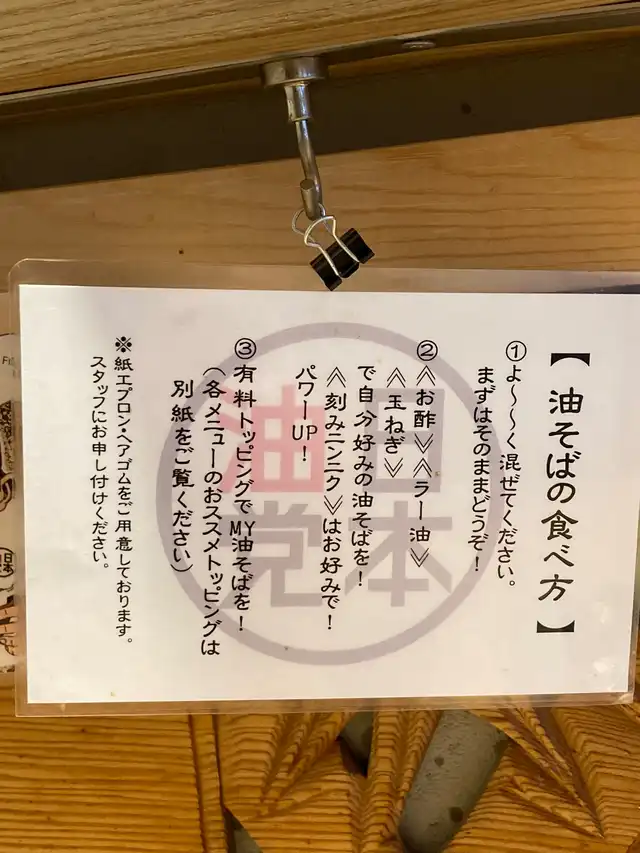 【 油そばの食べ方 】
①よ〜〜く混ぜてください。
まずはそのままどうぞ！
②≪お酢≫≪ラー油≫
≪玉ねぎ≫
で自分好みの油そばを！
≪刻みニンニク≫はお好みで！
パワーUP！
③有料トッピングでMY油そばを！
（各メニューのおススメトッピングは
別紙をご覧ください）
※紙エプロン・ヘアゴムをご用意しております。
スタッフにお申し付けください。
日本
油党